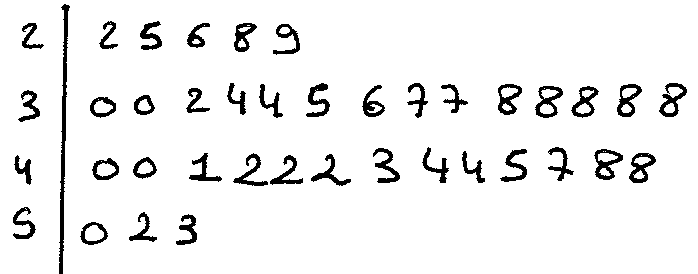 2 | 2 5 6 8 9
3 | 0 0 2 4 4 5 6 7 7 8 8 8 8 8
4 | 0 0 1 2 2 2 3 4 4 5 7 8 8
5 | 0 2 3